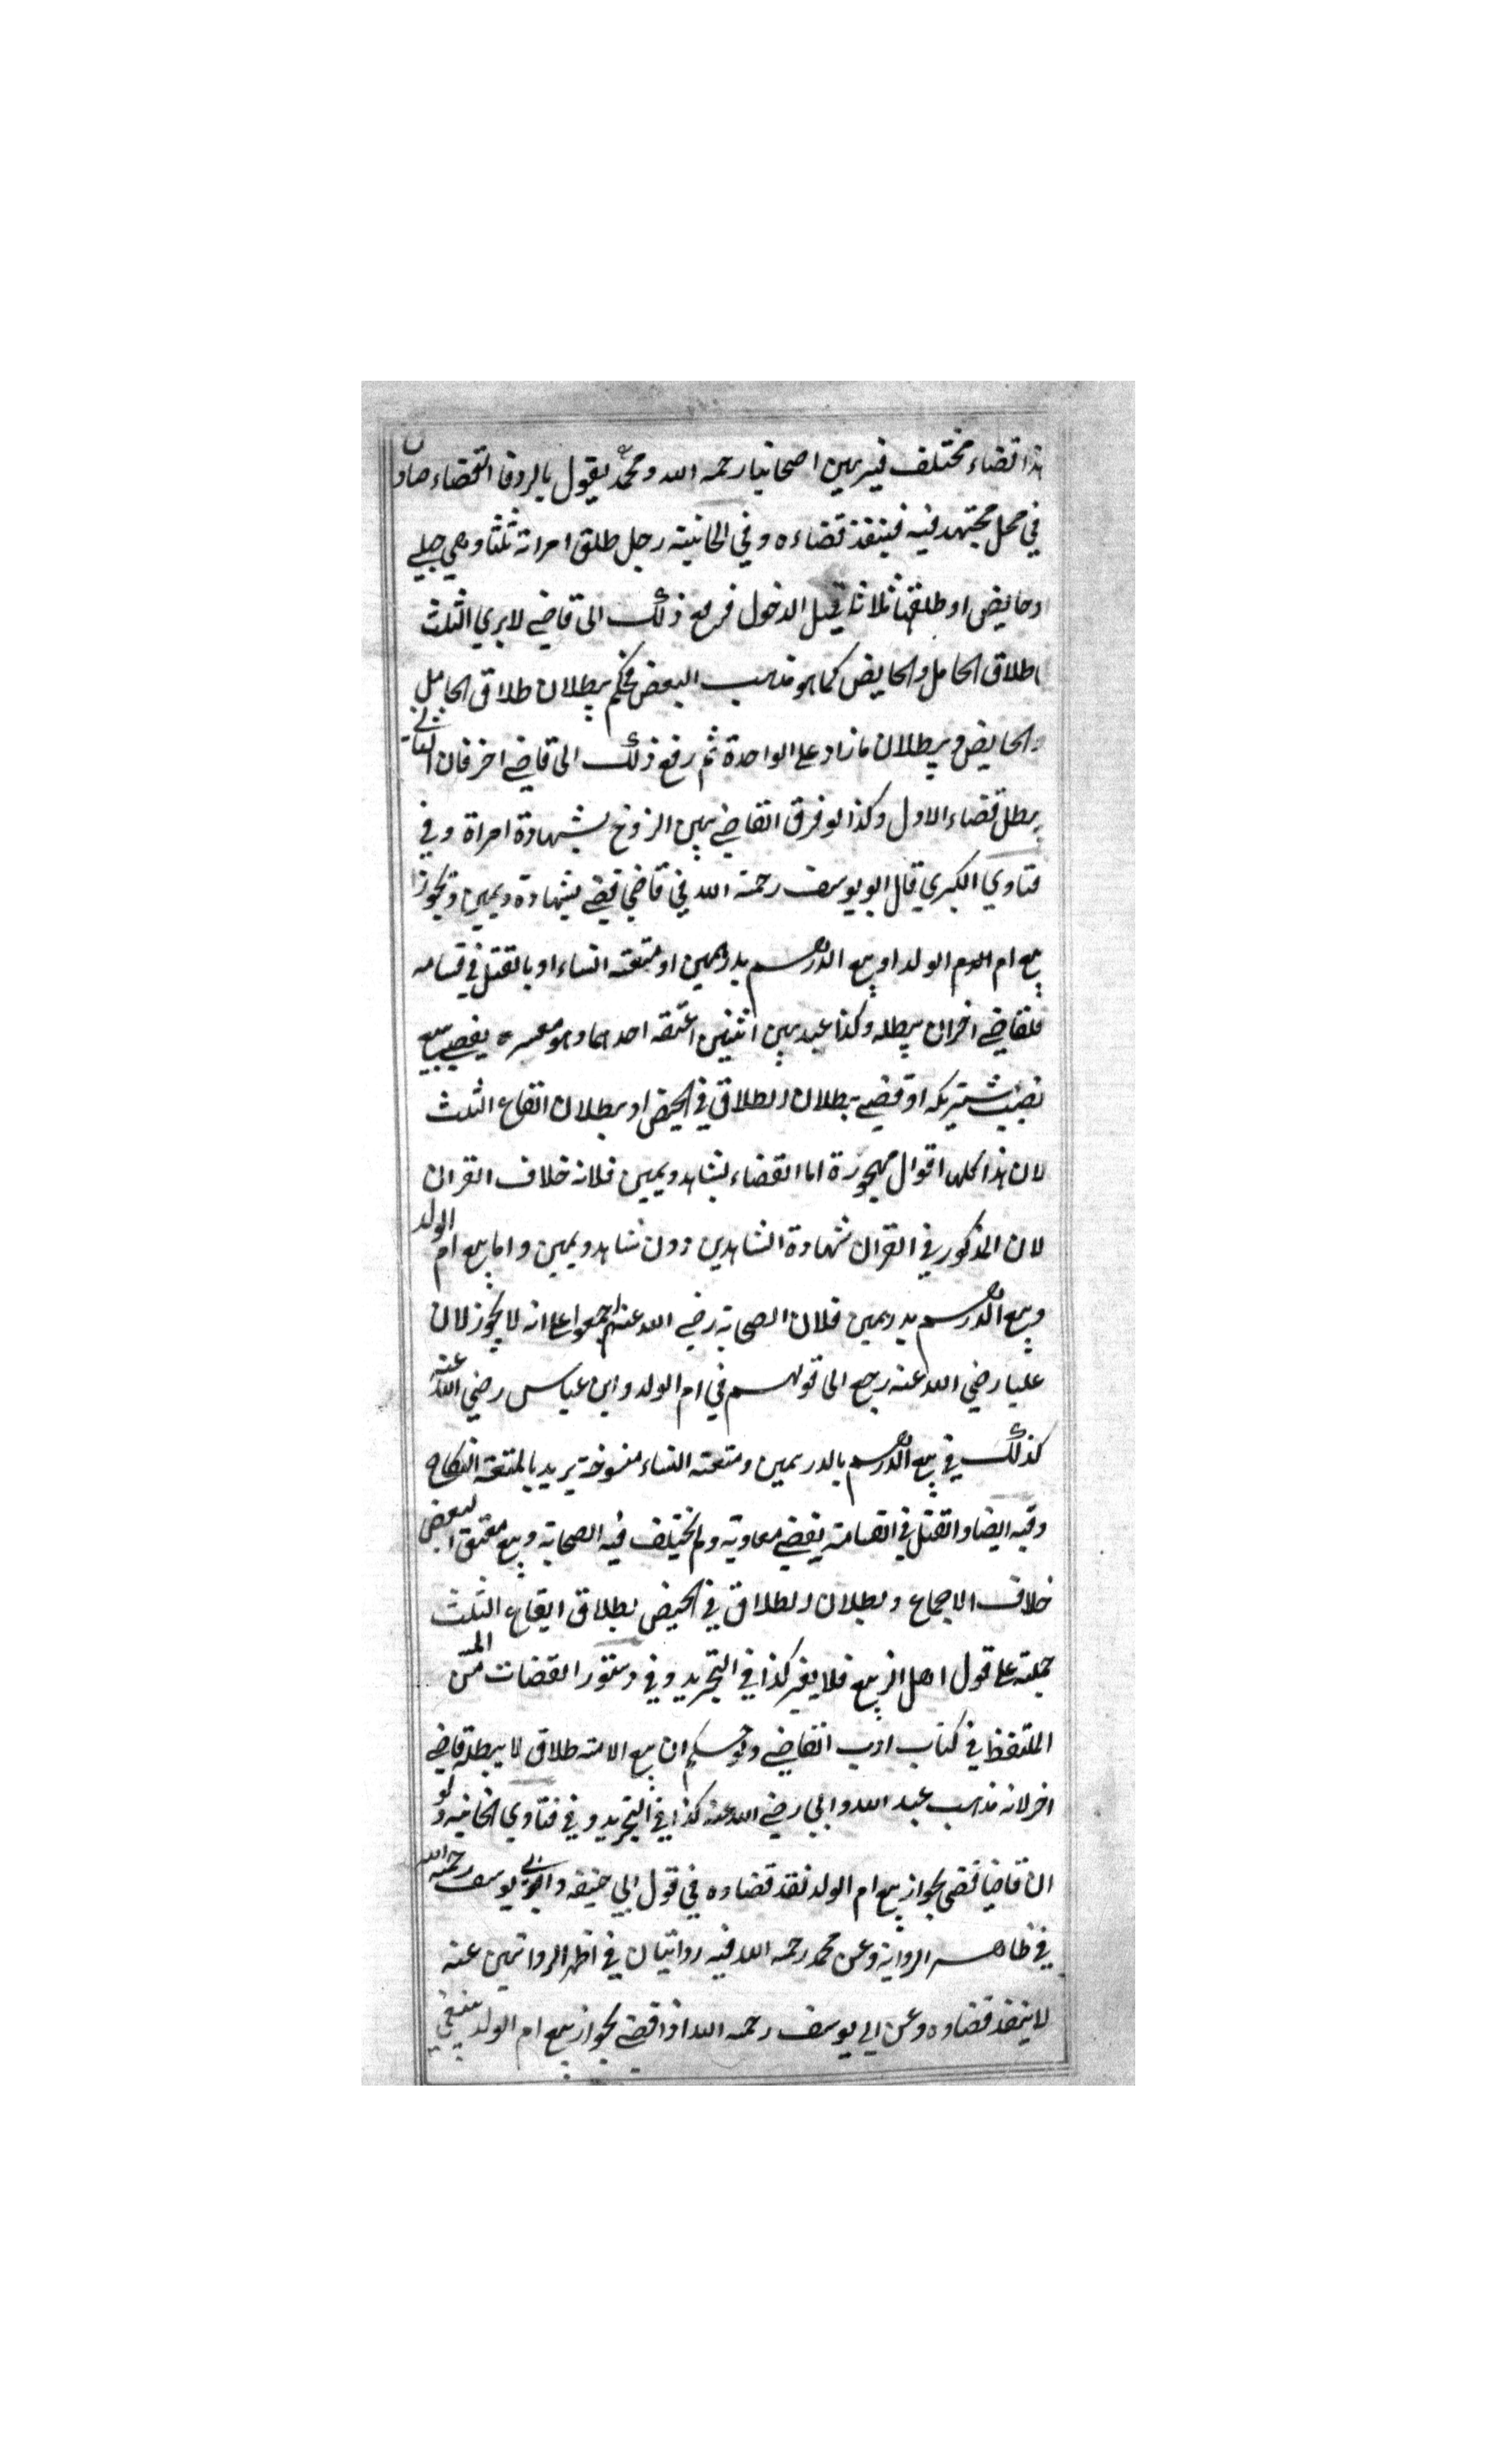 هذا قضاء مختلف فيه بين اصحابنا رحمه الله ومحمد يقول بالرد فالقضاء صادف
في محل مجتهد فيه فينفذ قضاءه وفي الخانية رجل طلق امراته ثلثا وهي حبلي
او حايض او طلقها ثلاثا قبل الدخول فرفع ذلك الى قاضي لا يري الثلث
اطلاق الحامل والحايض كما هو مذهب البعض فحكم ببطلان طلاق الحامل
والحايض وببطلان ما زاد على الواحدة ثم رفع ذلك الى قاضي اخر فان الثاني
يبطل قضاء الاول وكذا لو فرق القاضي بين الزوج بشهادة امراة وفي
فتاوي الكبري قال ابو يوسف رحمة الله في قاضي قضي بشهادة ويمين وتجوز
بيع ام الولد او بيع الدرهم بدرهمين او متعته النساء او بالقتل في قسامه
فلقاضي اخر ان يبطله وكذا عبد بين اثنين اعتقه احدهما وهو معسره يقضي ببيع
نصيب شريكه او قضي ببطلان الطلاق في الحيض او ببطلان ايقاع الثلث
لان هذا كلها اقوال مهجورة اما القضاء بشاهد ويمين فلانه خلاف القران
لان المذكور في القران شهادة الشاهدين دون شاهد ويمين واما بيع ام الولد
وبيع الدرهم بدرهمين فلان الصحابة رضي الله عنهم اجمعوا على انه لا يجوز لان
عليا رضي الله عنه رجع الى قولهم في ام الولد وابن عباس رضي الله عنه
كذلك في بيع الدرهم بالدرهمين ومتعته النساء منسوخة يريد بالمتعة النكاح
وفيه ايضا والقتل في القسامة يقضي معاوية ولم يختلف فيه الصحابة وبيع معتق البعض
خلاف الاجماع وبطلان الطلاق في الحيض بطلاق ايقاع الثلث
جملته على قول اهل الزيع فلا يغير كذا في التجريد وفي دستور القضات من
الملتقط في كتاب ادب القاضي ان بيع الامته طلاق لا يبطله قاضي
اخر لانه مذهب عبد الله وابي رضي الله عنه كذا في التجريد وفي فتاوي الخانيه ولو
ان قاضيا قضى بجواز بيع ام الولد نفذ قضاوه في قول ابي حنيفه وابي يوسف رحمه الله
في ظاهر الرواية وعن محمد رحمه الله فيه روايتان في اظهر الروايتين عنه
لا ينفذ قضاوه وعن ابي يوسف رحمه الله اذا قضي بجواز بيع ام الولد ينبغي